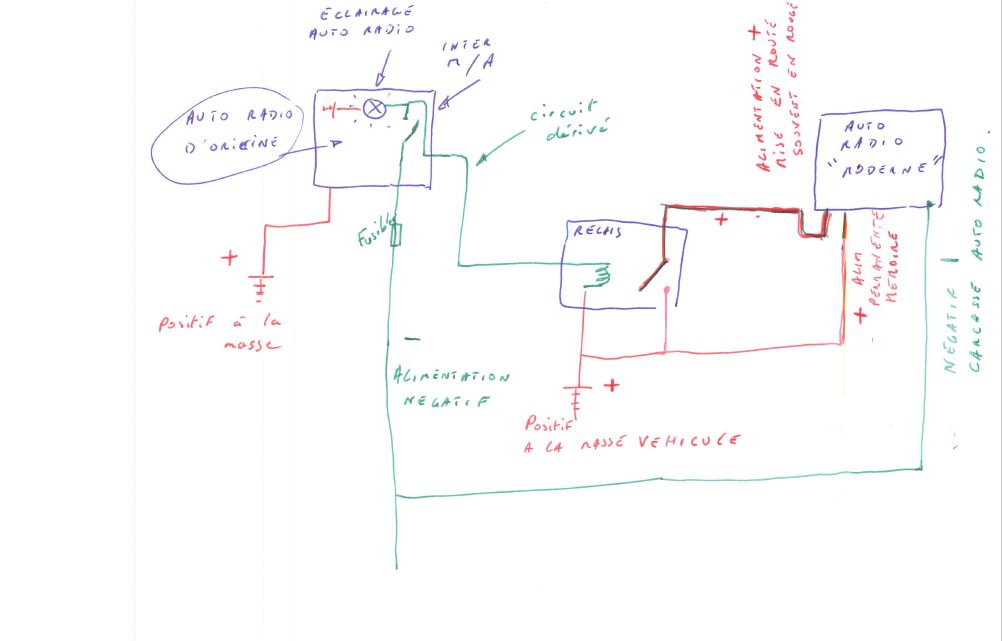 ECLAIRAGE
AUTO RADIO
INTER
M/A
AUTO RADIO
D'ORIGINE
circuit
dérivé
Fusible
+
Positif à la
masse
-
ALIMENTATION
NEGATIF
RELAIS
+
-
+
Positif
A LA MASSE VEHICULE
ALIMENTATION +
MISE EN ROUTE
SOUVENT EN ROUGE
AUTO
RADIO
"MODERNE"
+ ALIM
PERMANENTE
MEMOIRE
NEGATIF -
CARCASSE AUTO RADIO.